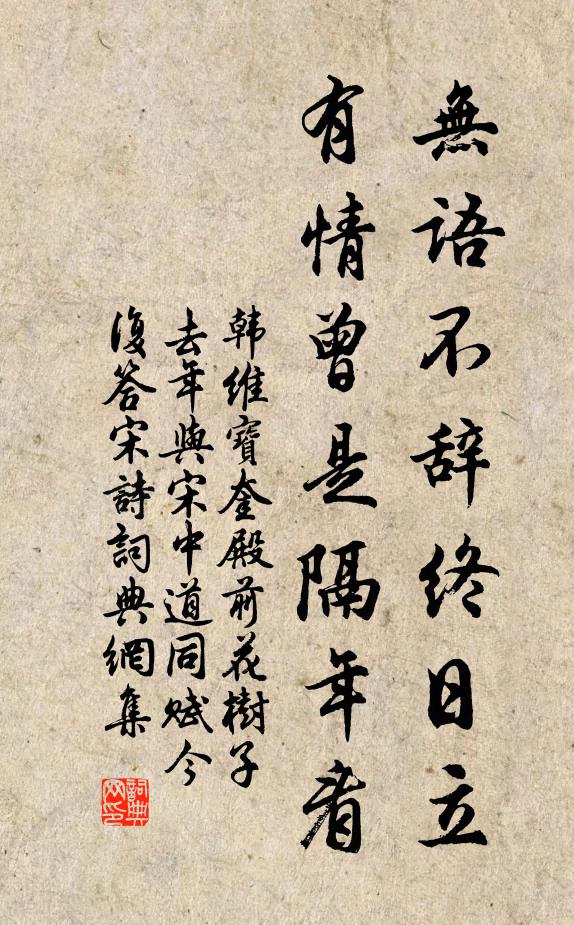 無語不辞終日立
有情曾是隔年看
韩維寶奎殿前花樹子
去年與宋中道同赋今
復答宋詩詞典網集
詞典
网印